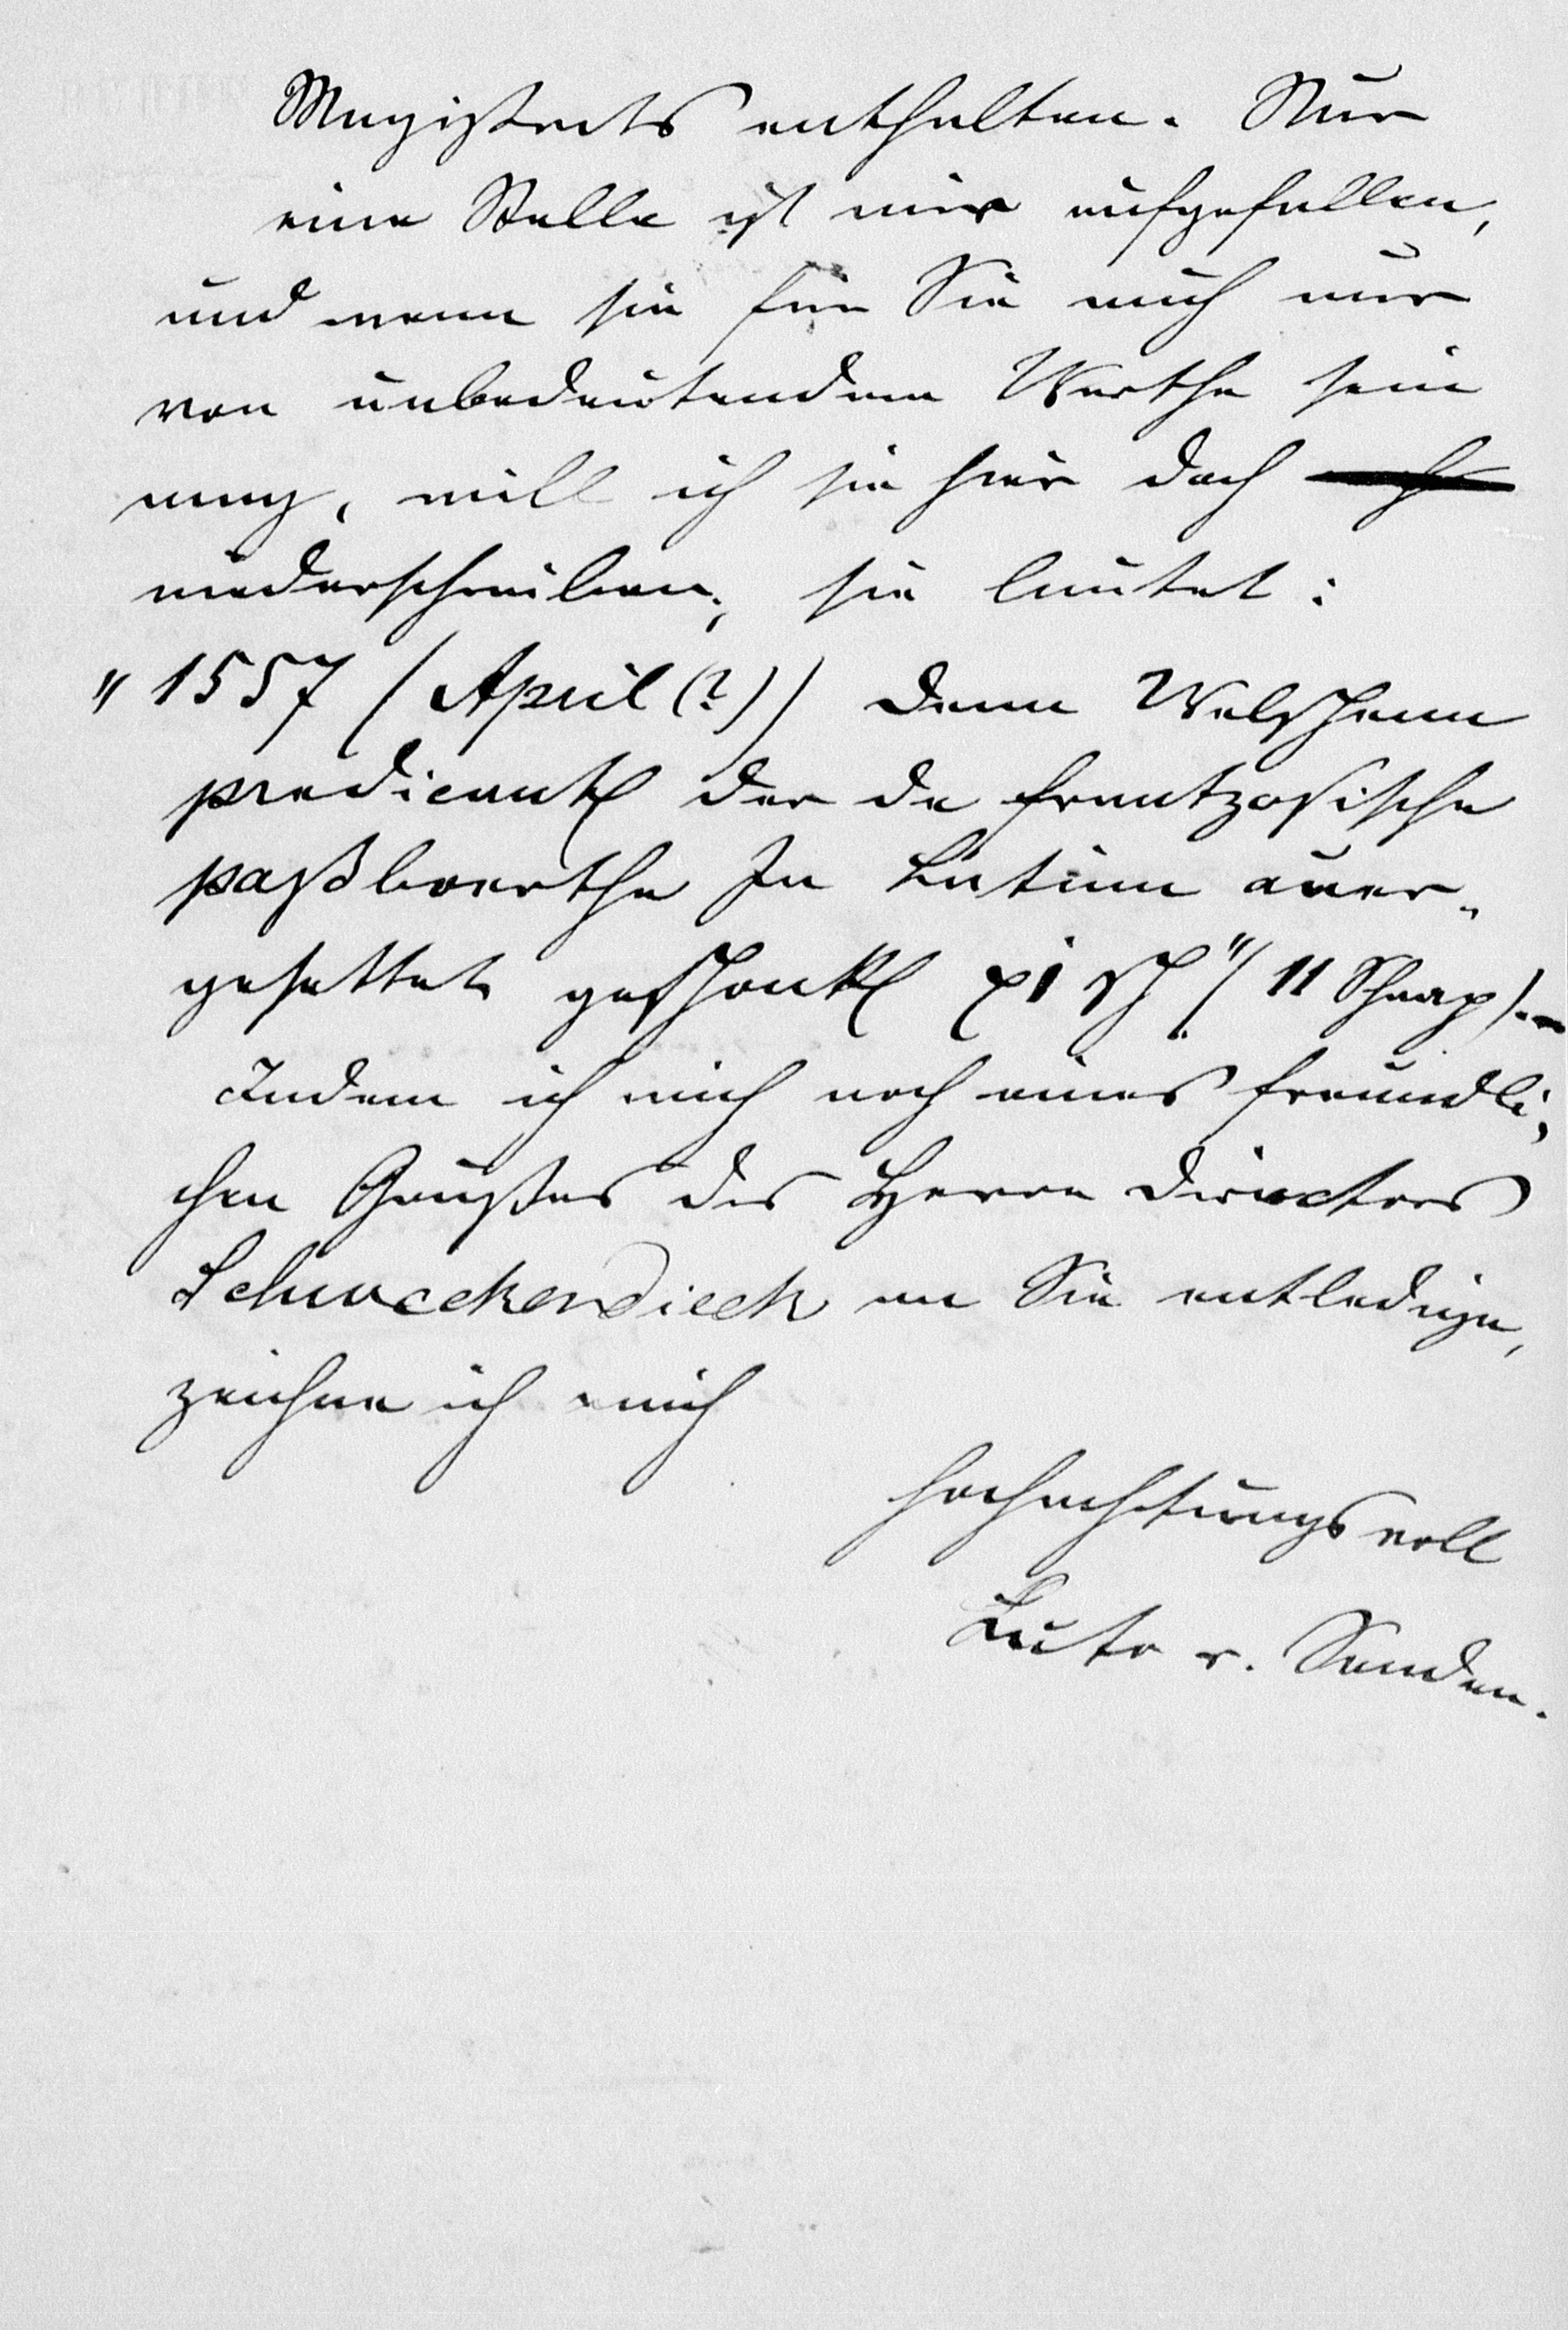 Magistrats enthalten. Nur
eine Stelle ist mir aufgefallen,
und wenn sie für Sie auch nur
von unbedeutendem Werthe sein
mag, will ich sie hier doch
niederschreiben; sie lautet:
"1557 (April (?)) Denn Welschenn
predicant der de frantzosische
paßboerthe In Latinn auer-
gesettet geschonkt xi sch" (11 Schaap).-
Indem ich mich noch eines freundli-
chen Grußes des Herrn Directors
Schweckendieck an Sie entledige,
zeichne ich mich
hochachtungsvoll
v. Senden.